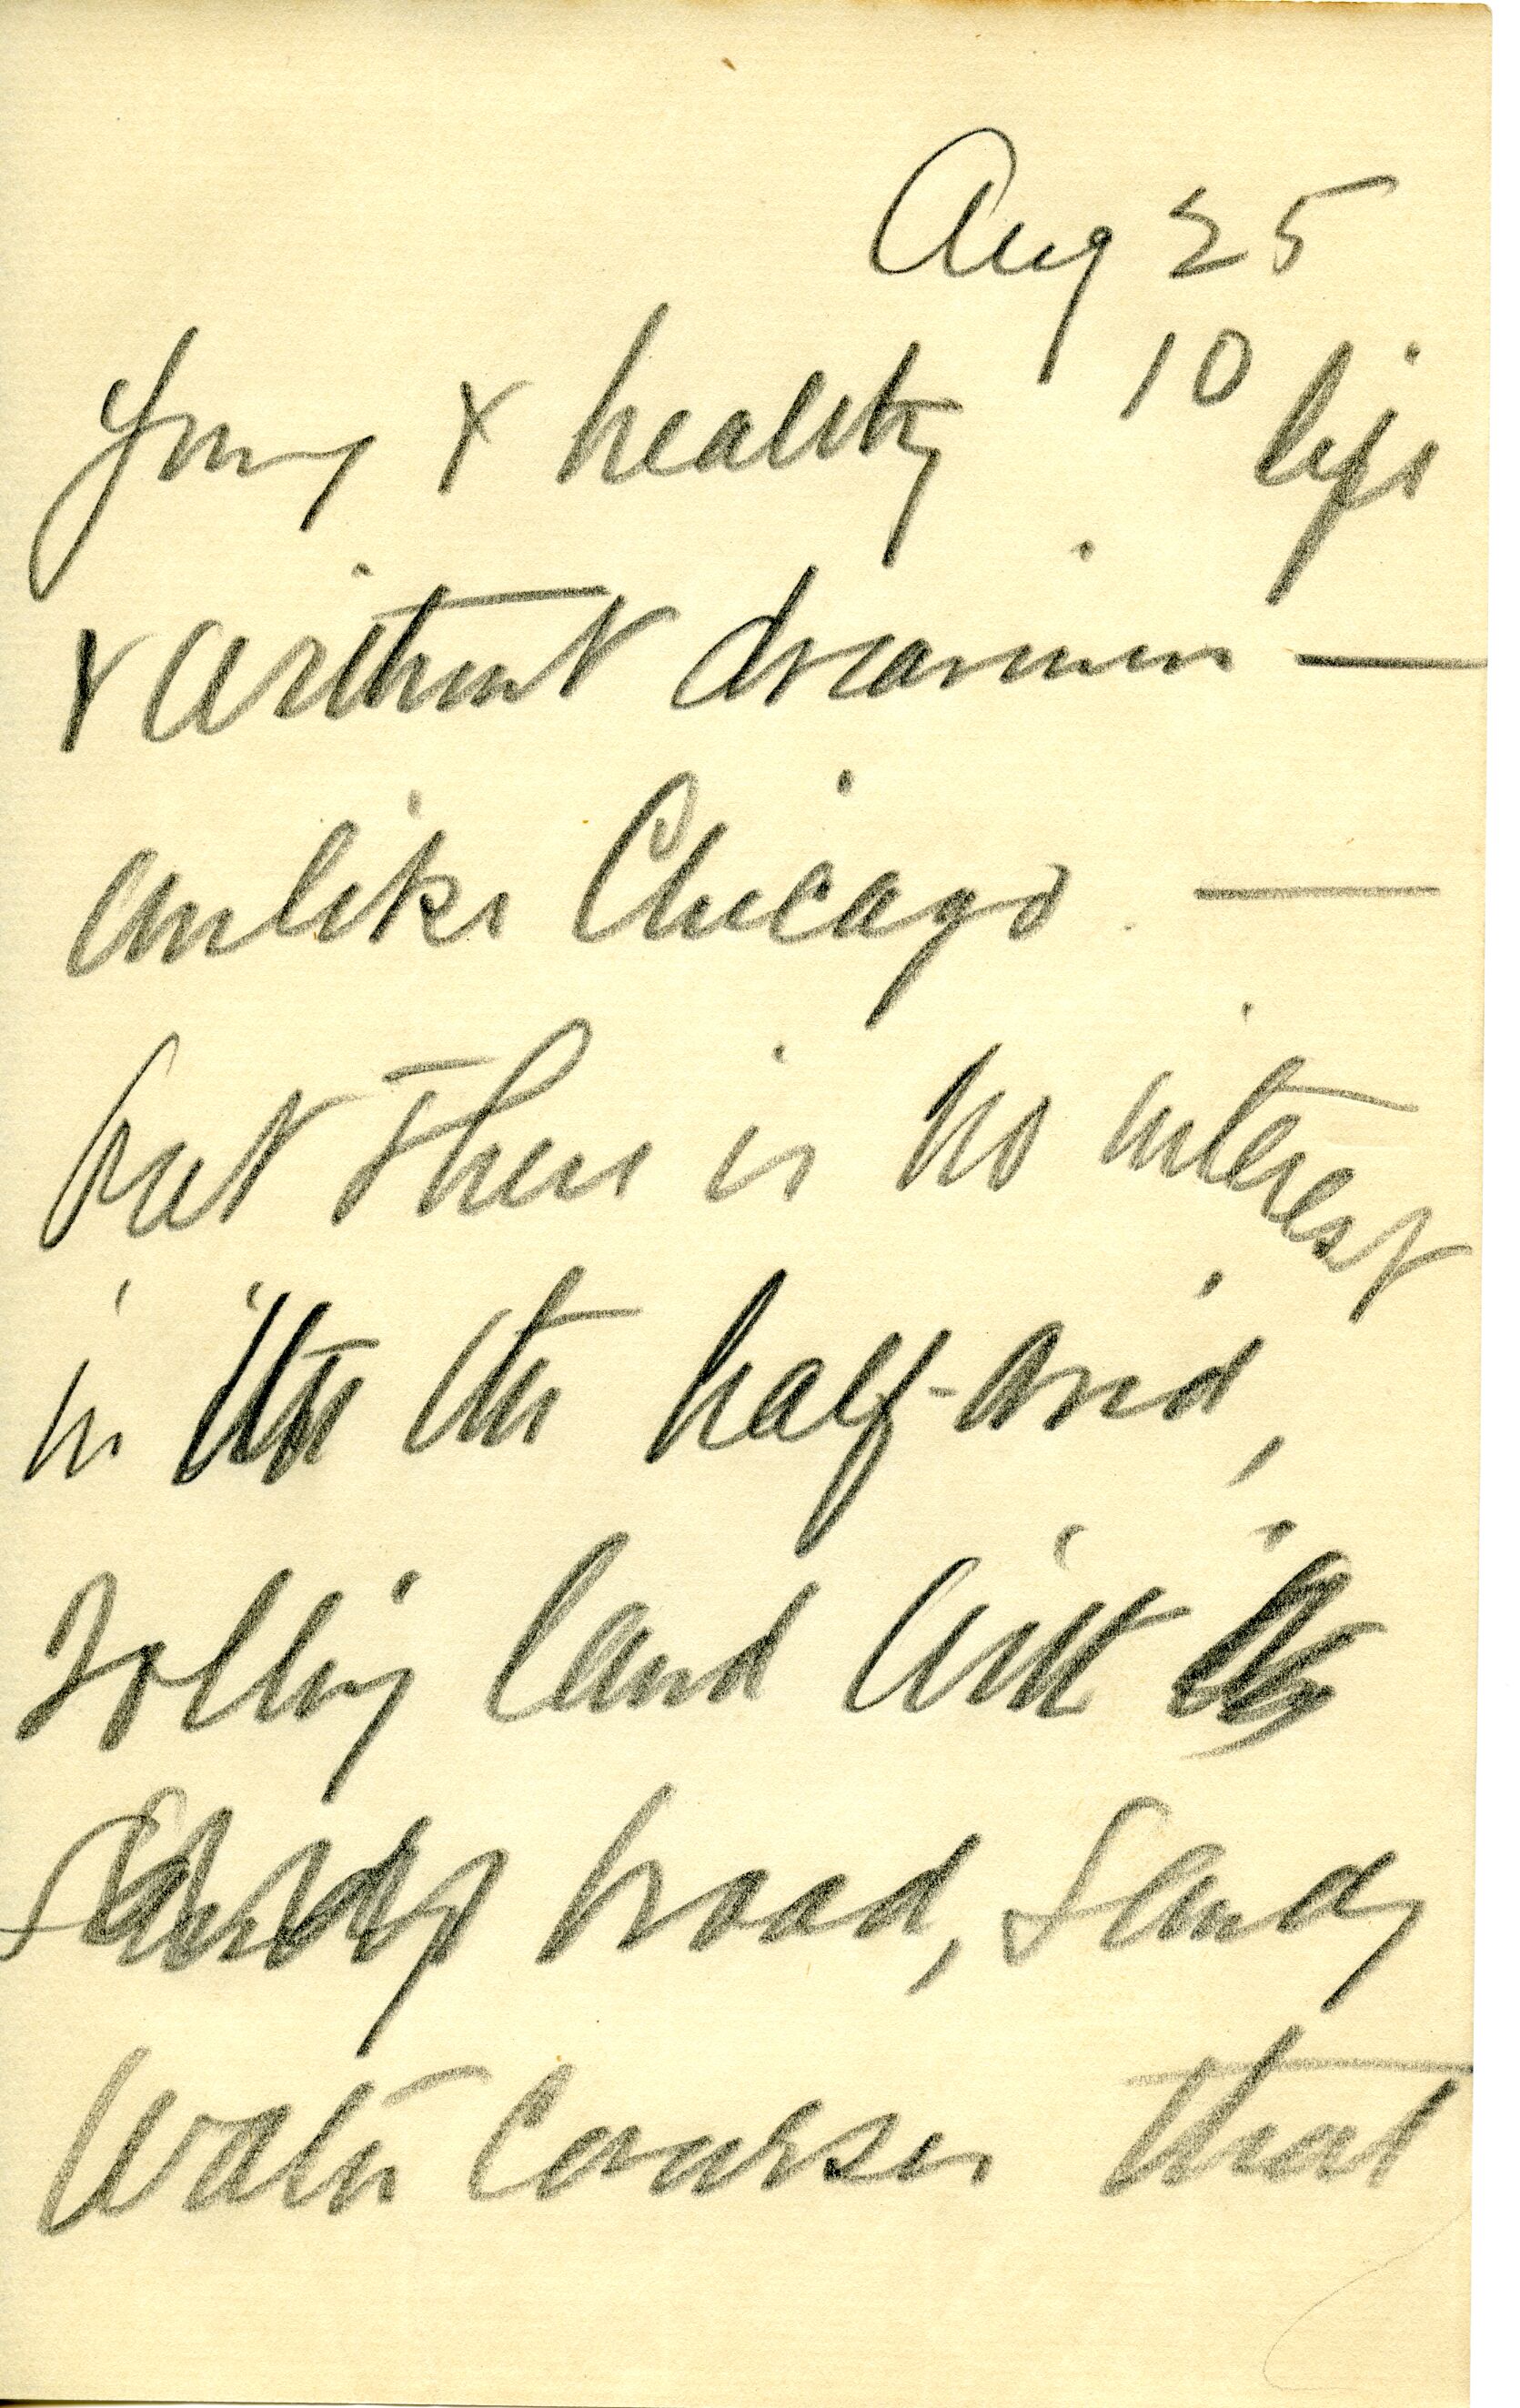 Aug 25
10
young + healthy life
+ without dreariness —
unlike Chicago. —
but there is no interest
in the half-arid,
rolling land with
broad, sandy
water courses that